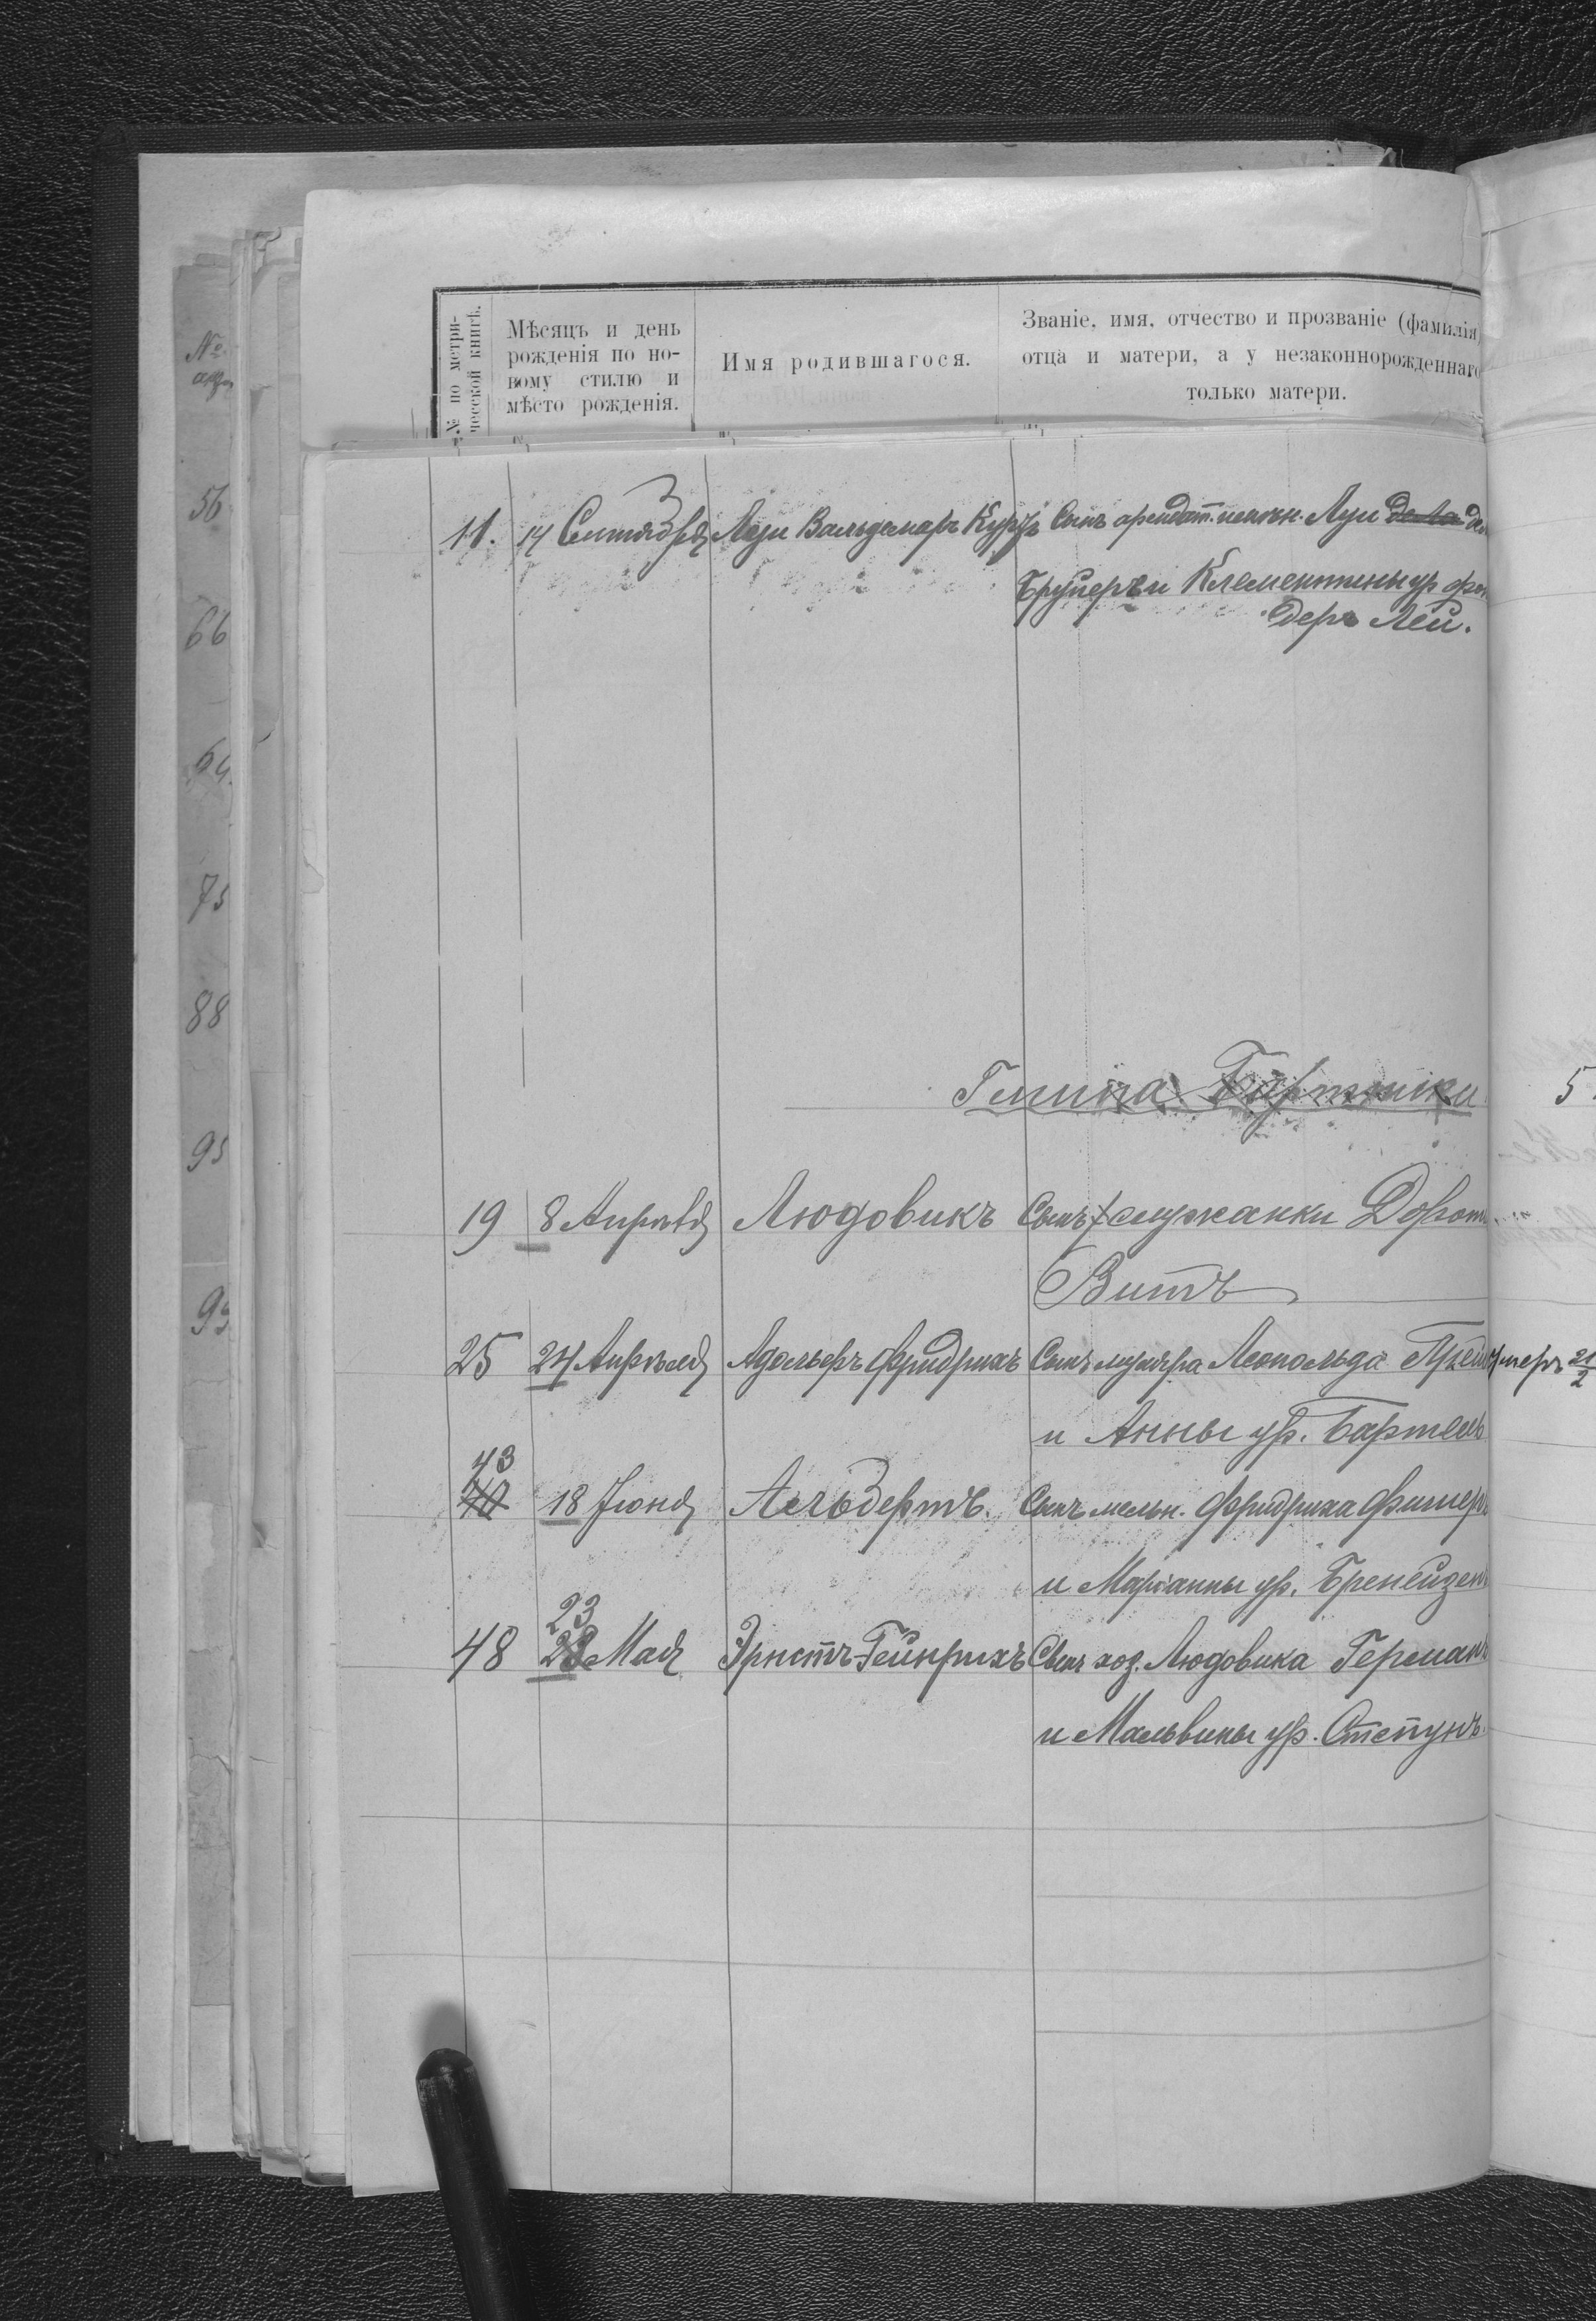 № по метри-
ческой книгѣ.
Мѣсяцъ и день
рожденія по но-
вому стилю и
мѣсто рожденія.
Имя родившагося.
Званіе, имя, отчество и прозваніе (фамилія)
отца и матери, а у незаконнорожденнаго
только матери.
№
56
66
64
75
88
95
11. 14 Сентября Луи Вальдемаръ Куртъ Сынъ арендат. Луи
Клементины ур. фон
деръ Лей.
Гмина
5
19 8 Апрѣля Людовикъ Сынъ служанки
Виттъ
25 24 Апрѣля Адольфъ Фридрихъ Сынъ Леопольда
умеръ 21/2
и Анны ур. Бартель
43
18 Іюня Альбертъ. Сынъ мельн. Фридриха Фишеръ
и Маріанны ур.
23
48 28 Мая Эрнстъ-Гейнрихъ Сынъ хоз. Людовика Германъ
и Мальвины ур. Степунъ.